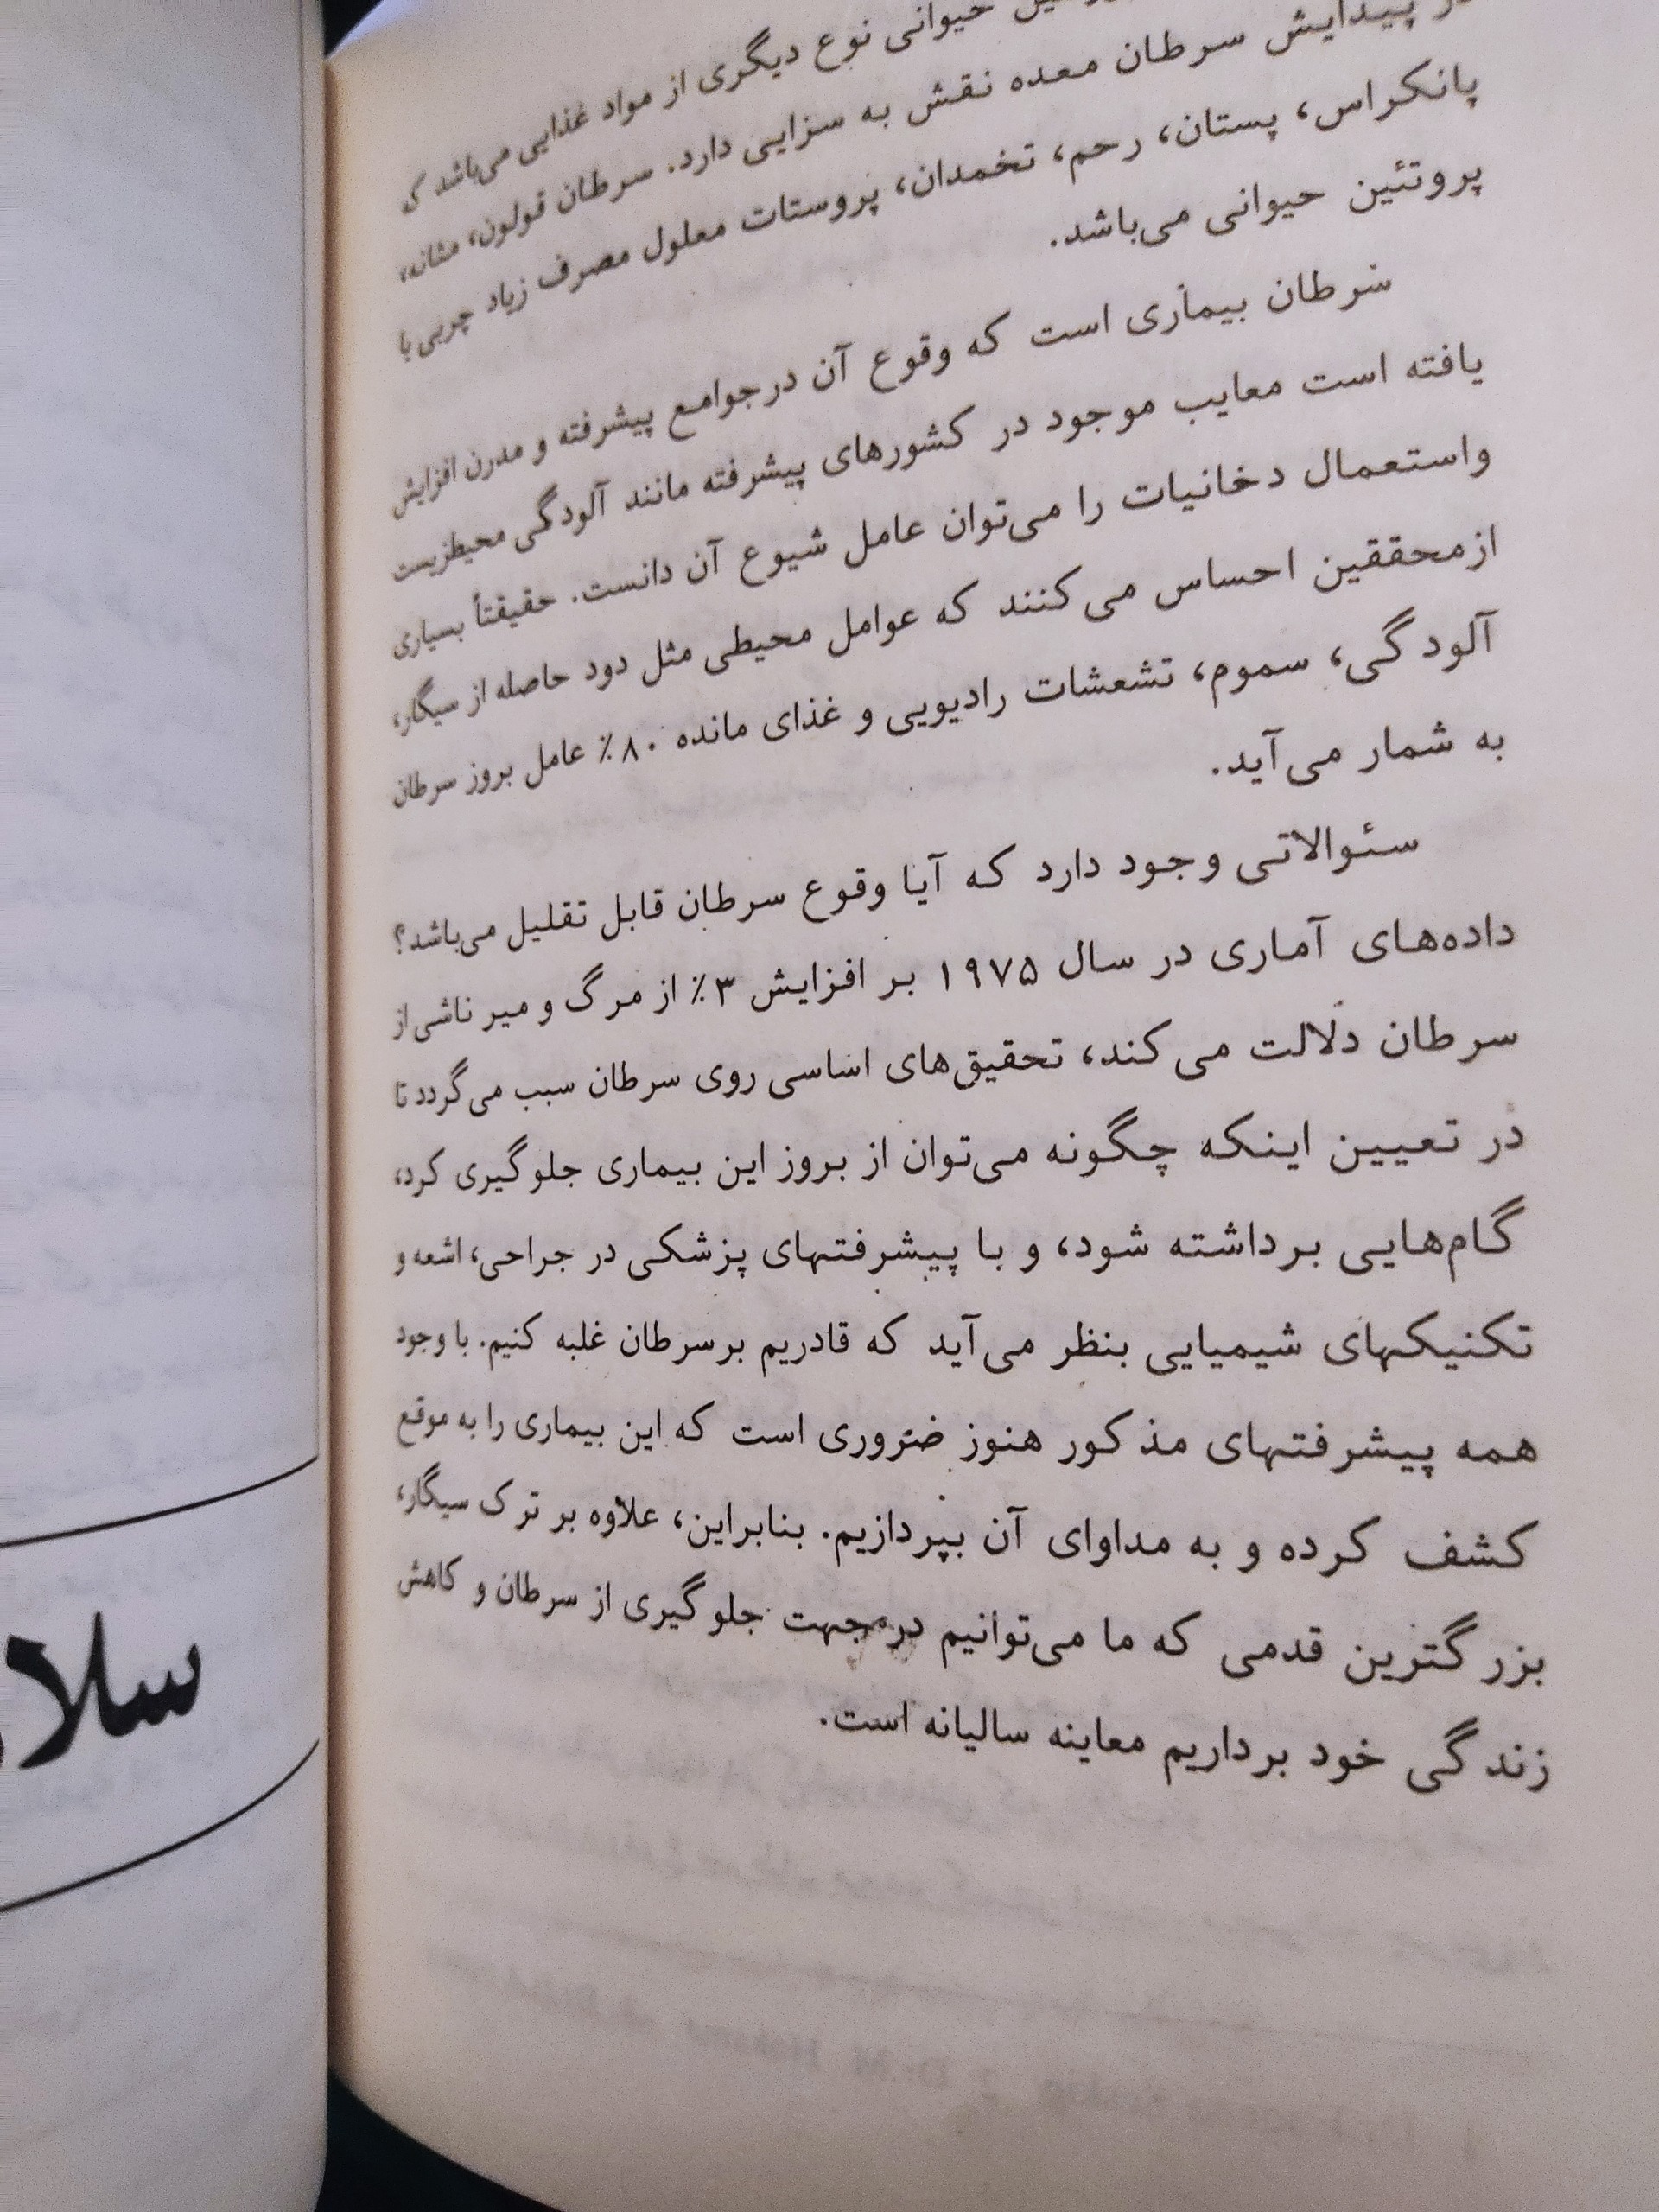 حیوانی نوع دیگری از مواد غذایی می‌باشد که
در پیدایش سرطان معده نقش به سزایی دارد. سرطان قولون، مثانه،
پانکراس، پستان، رحم، تخمدان، پروستات معلول مصرف زیاد چربی یا
پروتئین حیوانی می‌باشد.
سرطان بیماری است که وقوع آن درجوامع پیشرفته و مدرن افزایش
یافته است معایب موجود در کشورهای پیشرفته مانند آلودگی محیطزیست
واستعمال دخانیات را می‌توان عامل شیوع آن دانست. حقیقتاً بسیاری
ازمحققین احساس می‌کنند که عوامل محیطی مثل دود حاصله از سیگار،
آلودگی، سموم، تشعشات رادیویی و غذای مانده ۸۰٪ عامل بروز سرطان
به شمار می‌آید.
سئوالاتی وجود دارد که آیا وقوع سرطان قابل تقلیل می‌باشد؟
داده‌های آماری در سال ۱۹۷۵ بر افزایش ۳٪ از مرگ و میر ناشی از
سرطان دلالت می‌کند، تحقیق‌های اساسی روی سرطان سبب می‌گردد تا
در تعیین اینکه چگونه می‌توان از بروز این بیماری جلوگیری کرد،
گام‌هایی برداشته شود، و با پیشرفتهای پزشکی در جراحی، اشعه و
تکنیکهای شیمیایی بنظر می‌آید که قادریم برسرطان غلبه کنیم. با وجود
همه پیشرفتهای مذکور هنوز ضروری است که این بیماری را به موقع
کشف کرده و به مداوای آن بپردازیم. بنابراین، علاوه بر ترک سیگار،
بزرگترین قدمی که ما می‌توانیم درجهت جلوگیری از سرطان و کاهش
زندگی خود برداریم معاینه سالیانه است.